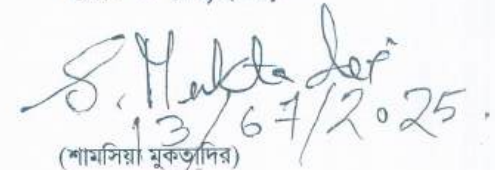 S. Muktader
13/07/2025.
(শামসিয়া মুকতাদির)